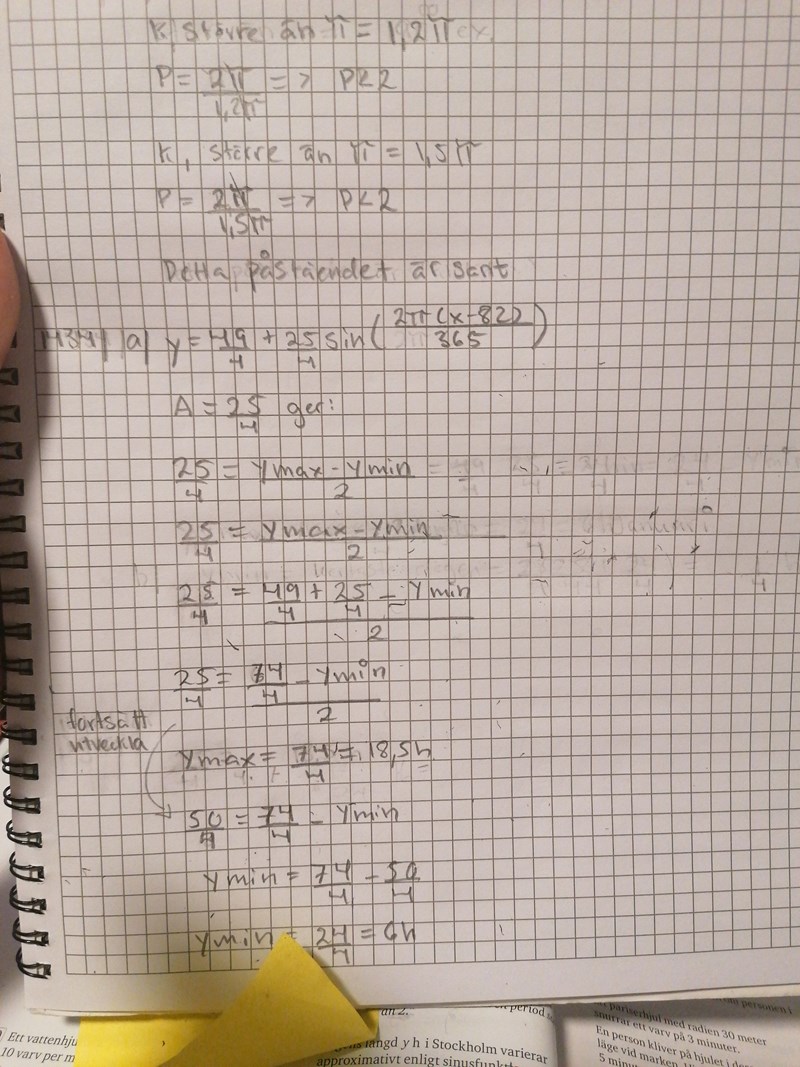 K, större än π = 1,2π
P = 2π/1,2π => P<2
K, större än π = 1,5π
P = 2π/1,5π => P<2
Detta påståendet är sant
1434 a) y = 49/4 + 25/4 sin(2π(x-82)/365)
A = 25/4 ger:
25/4 = ymax - ymin/2
25/4 = ymax - ymin/2
25/4 = 49/4 + 25/4 - ymin/2
25/4 = 74/4 - ymin/2
fortsätt
utveckla
ymax = 74/4 = 18,5h
50/4 = 74/4 - ymin
ymin = 74/4 - 50/4
ymin = 24/4 = 6h
Ett vattenhju
10 varv per m
än 2.
period
längd y h i Stockholm varierar
approximativt enligt sinusfunkt
pariserhjul med radien 30 meter
snurrar ett varv på 3 minuter.
En person kliver på hjulet i de
läge vid marken.
5 minu
personen i